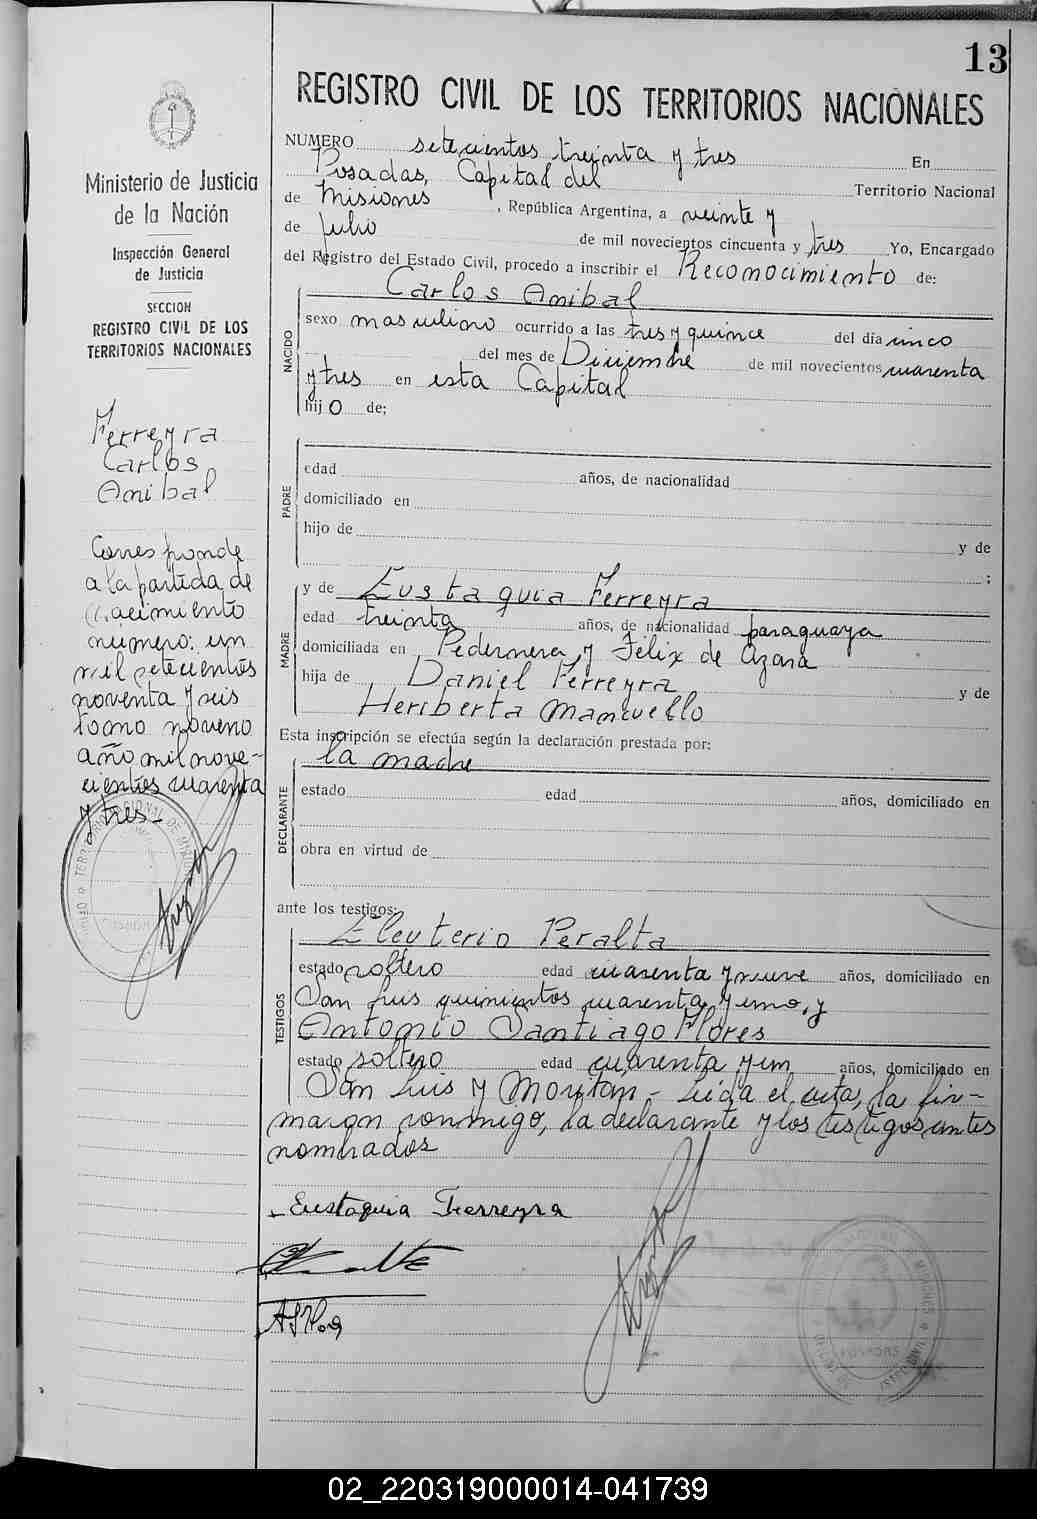 13
REGISTRO CIVIL DE LOS TERRITORIOS NACIONALES
Ministerio de Justicia
de la Nación
Inspección General
de Justicia
SECCION
REGISTRO CIVIL DE LOS
TERRITORIOS NACIONALES
Ferreyra
Carlos
Anibal
Corresponde
a la partida de
nacimiento
numero: un
mil setecientos
noventa y seis
tomo noveno
año mil nove-
cientos cuarenta
y tres.-
NUMERO setecientos treinta y tres En
Posadas, Capital del Territorio Nacional
de Misiones, República Argentina, a veinte y
de Julio de mil novecientos cincuenta y tres Yo, Encargado
del Registro del Estado Civil, procedo a inscribir el Reconocimiento de:
NACIDO
Carlos Anibal
sexo masculino ocurrido a las tres y quince del día cinco
del mes de Diciembre de mil novecientos cuarenta
y tres en esta Capital
hijo de:
PADRE
edad años, de nacionalidad
domiciliado en
hijo de y de
;
MADRE
y de Eustaquia Ferreyra
edad treinta años, de nacionalidad paraguaya
domiciliada en Pedernera y Félix de Azara
hija de Daniel Ferreyra y de
Heriberta Mancuello
Esta inscripción se efectúa según la declaración prestada por:
la madre
DECLARANTE
estado edad años, domiciliado en
obra en virtud de
ante los testigos:
TESTIGOS
Eleuterio Peralta
estado soltero edad cuarenta y nueve años, domiciliado en
San Luis quinientos cuarenta y uno, y
Antonio Santiago Flores
estado soltero edad cuarenta y un años, domiciliado en
San Luis y Moritan - Leida el acta, la fir-
maron conmigo, la declarante y los testigos antes
nombrados
Eustaquia Ferreyra
02_220319000014-041739